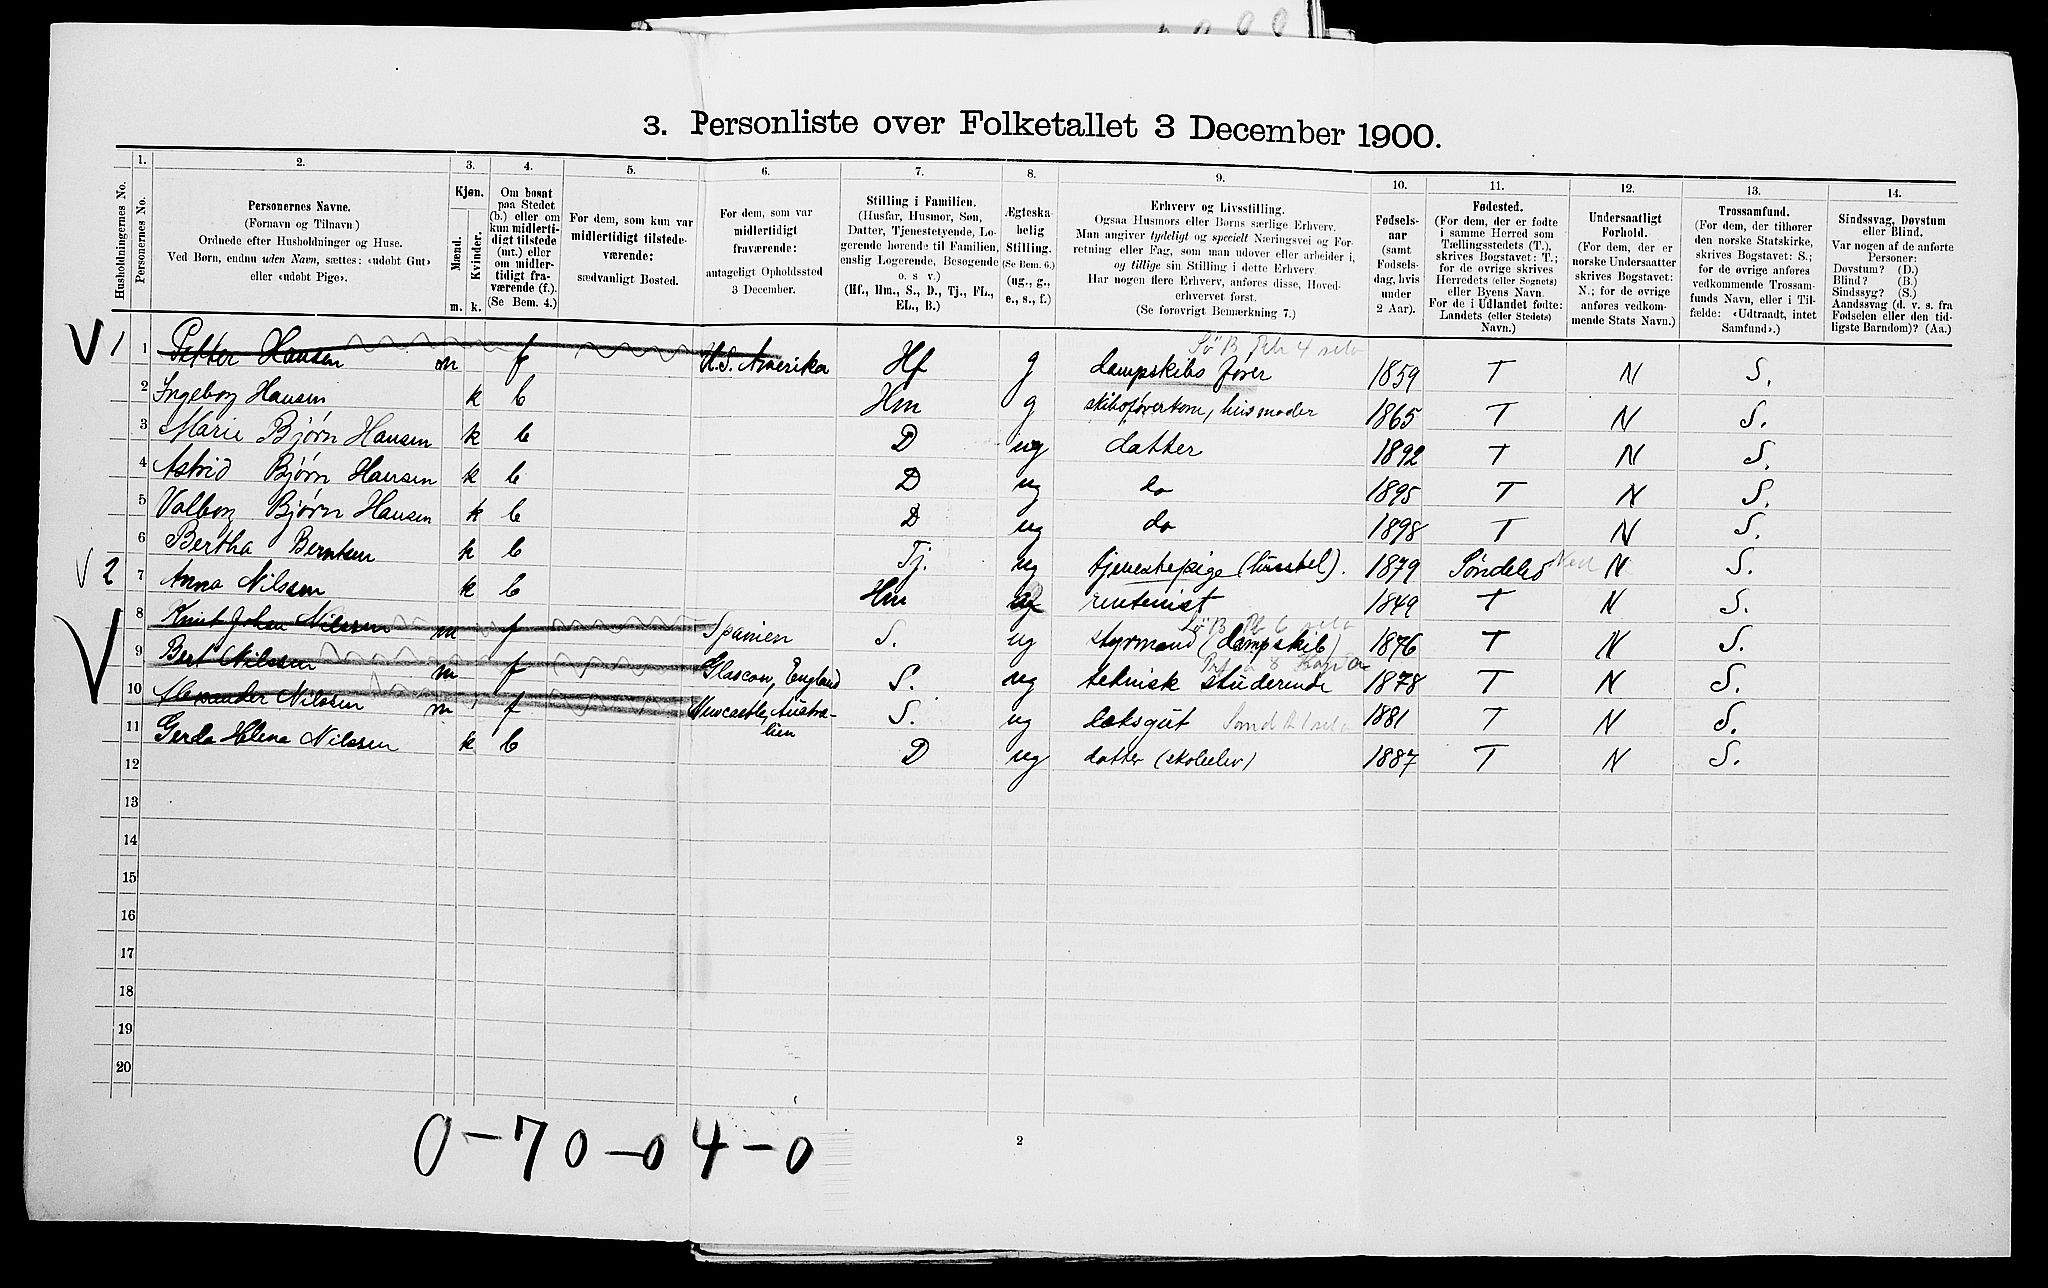 3. Personliste over Folketallet 3 December 1900.
1. 2. 3. 4. 5. 6. 7. 8. 9. 10. 11. 12. 13. 14.
Husholdningernes No.
Personernes No.
Personernes Navne.
(Fornavn og Tilnavn)
Ordnede efter Husholdninger og Huse.
Ved Børn, endnu uden Navn, sættes: «udøbt Gut»
eller «udøbt Pige».
Kjøn.
Mænd.
Kvinder.
m. k.
Om bosat
paa Stedet
(b.) eller om
kun midlerti-
digt tilstede
(mt.) eller
om midler-
tidigt fra-
værende (f.)
(Se Bem. 4.)
For dem, som kun var
midlertidigt tilstede-
værende:
sædvanligt Bosted.
For dem, som var
midlertidigt
fraværende:
antageligt Opholdssted
3 December.
Stilling i Familien.
(Husfar, Husmor, Søn,
Datter, Tjenestetyende, Lo-
gerende hørende til Familien,
enslig Logerende, Besøgende
o. s v.)
(Hf., Hm., S., D., Tj., FL.,
EL., B.)
Ægteska-
belig
Stilling.
(Se Bem. 6.)
(ug., g.,
e., s., f.)
Erhverv og Livsstilling.
Ogsaa Husmors eller Børns særlige Erhverv.
Man angiver tydeligt og specielt Næringsvei og For-
retning eller Fag, som man udøver eller arbeider i,
og tillige sin Stilling i dette Erhverv.
Har nogen flere Erhverv, anføres disse, Hoved-
erhvervet først.
(Se forøvrigt Bemærkning 7.)
Fødsels-
aar
(samt
Fødsels-
dag, hvis
under
2 Aar).
Fødested.
(For dem, der er fødte
i samme Herred som
Tællingsstedets (T.),
skrives Bogstavet: T.;
for de øvrige skrives
Herredets (eller Sognets)
eller Byens Navn.
For de i Udlandet fødte:
Landets (eller Stedets)
Navn.)
Undersaatligt
Forhold.
(For dem, der er
norske Undersaatter
skrives Bogstavet:
N.; for de øvrige
anføres vedkom-
mende Stats Navn.)
Trossamfund.
(For dem, der tilhører
den norske Statskirke,
skrives Bogstavet: S.;
for de øvrige anføres
vedkommende Trossam-
funds Navn, eller i Til-
fælde: «Udtraadt, intet
Samfund».)
Sindssvag, Døvstum
eller Blind.
Var nogen af de anførte
Personer:
Døvstum? (D.)
Blind? (B.)
Sindssyg? (S.)
Aandssvag (d. v. s. fra
Fødselen eller den tid-
ligste Barndom)? (Aa.)
V 1 1 Petter Hansen m f U.S. Amerika Hf g dampskibsfører 1859 T N S.
2 Ingeborg Hansen k b Hm g skibsførerkone, husmoder 1865 T N S.
3 Marie Bjørn Hansen k b D ug datter 1892 T N S.
4 Astrid Bjørn Hansen k b D ug do 1895 T N S.
5 Valborg Bjørn Hansen k b D ug do 1898 T N S.
6 Bertha Berntsen k b Tj. ug tjenestepige (husstel). 1879 Søndeled N S.
V 2 7 Anna Nilssen k b Hm rentenist 1849 T N S.
V 8 Knut Johan Nilssen m f Spanien S. ug styrmand (dampskib) 1876 T N S.
9 Bert Nilssen m f Glascow, England S. ug teknisk studerende 1878 T N S.
10 Alexander Nilssen m f Newcastle, Austra-
lien S. ug daksgut 1881 T N S.
11 Gerda Helena Nilssen k b D ug datter (skoleelev) 1887 T N S.
12
13
14
15
16
17
18
19
20
0-70-04-0
2